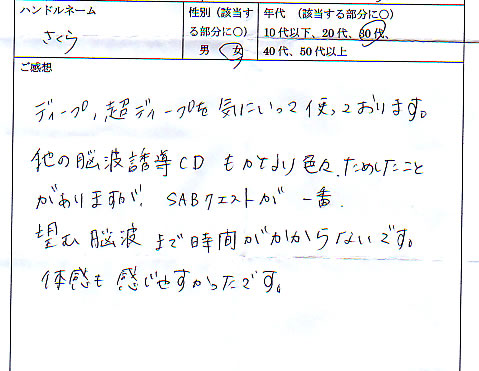 ハンドルネーム
さくら
性別（該当する部分に〇）
男 女
年代 （該当する部分に〇）
10代以下、20代、30代、
40代、50代以上
ご感想
ディープ、超ディープを気にいって使っております。
他の脳波誘導CD もかなり色々ためしたこと
がありますが、SABクエストが 一番
望む脳波 まで時間がかからないです。
体感も感じやすかったです。